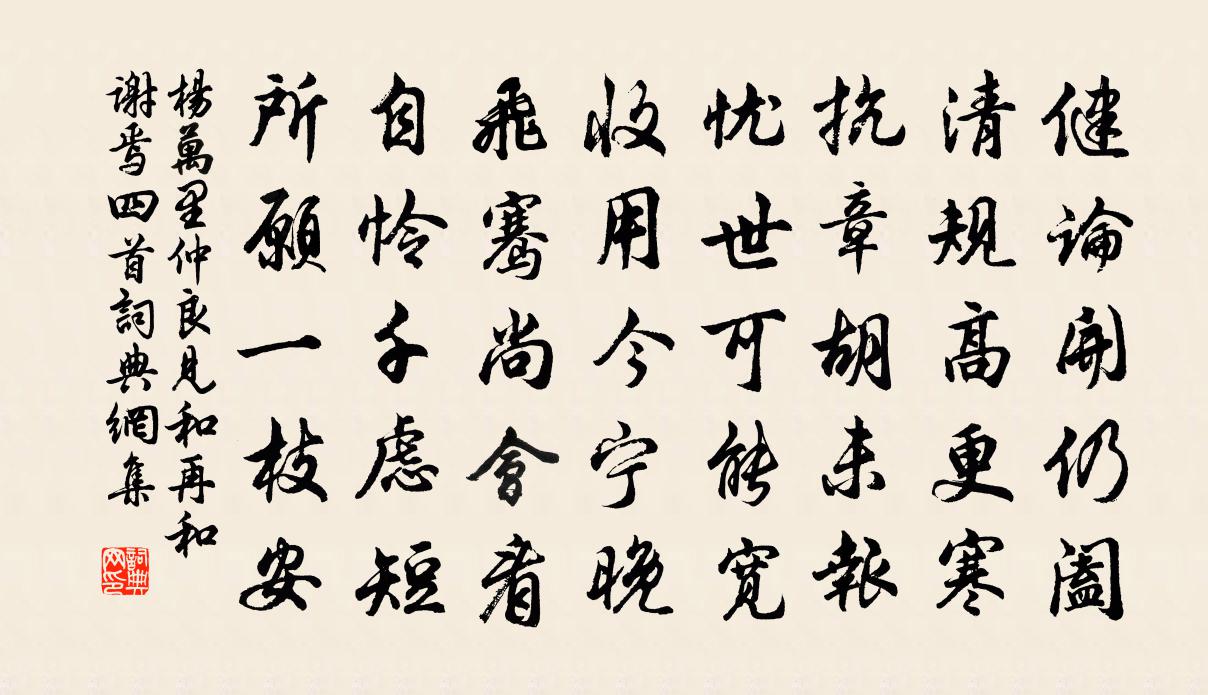 健論開仍阖
清規高更寒
抗章胡未報
忧世可能寬
收用今宁晚
飛騫尚會看
自怜千虑短
所願一枝安
楊萬里仲良見和再和
謝焉四首詞典網集
詞典
网印